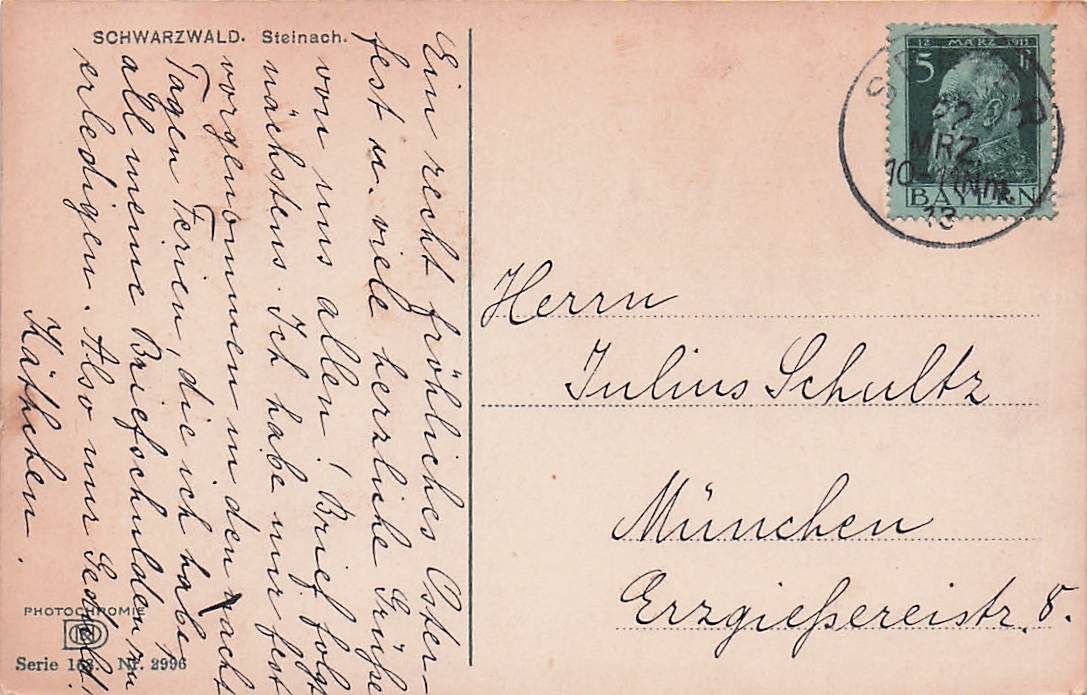 SCHWARZWALD. Steinach.
Ein recht fröhliches Oster-
fest u. viele herzliche Grüße
von uns allen! Brief folgt
nächstens. Ich habe mir fest
vorgenommen in den acht
Tagen Ferien, die ich habe,
all meine Briefschulden zu
erledigen. Also nur Geduld!
Käthchen.
12 MÄRZ 1911
5
BAYERN
22
MRZ
10-11 Nm.
13
Herrn
Julius Schultz
München
Erzgießereistr. 8.
PHOTOCHROMIE
Serie Nr. 2996